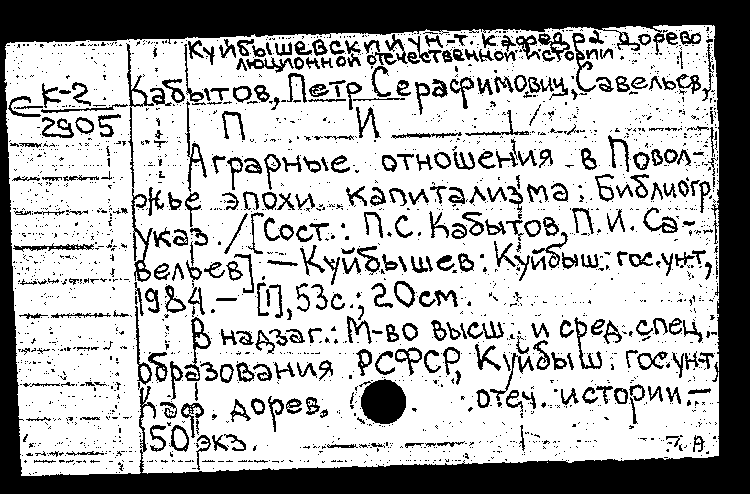 Куйбышевский ун-т. кафедра дорево
люционной отечественной истории.
К-2
2905
Кабытов, Петр Серафимович; Савельев,
П И
Аграрные отношения в Повол-
жье эпохи капитализма: Библиогр
указ. / [Сост.: П.С. Кабытов, П.И. Са-
вельев]. — Куйбышев: Куйбыш. гос. ун-т,
1984. — [1], 53с.; 20см.
В надзаг.: М-во высш. и сред. спец.
образования РСФСР, Куйбыш. гос. ун-т,
Каф. дорев. отеч. истории. —
150 экз.